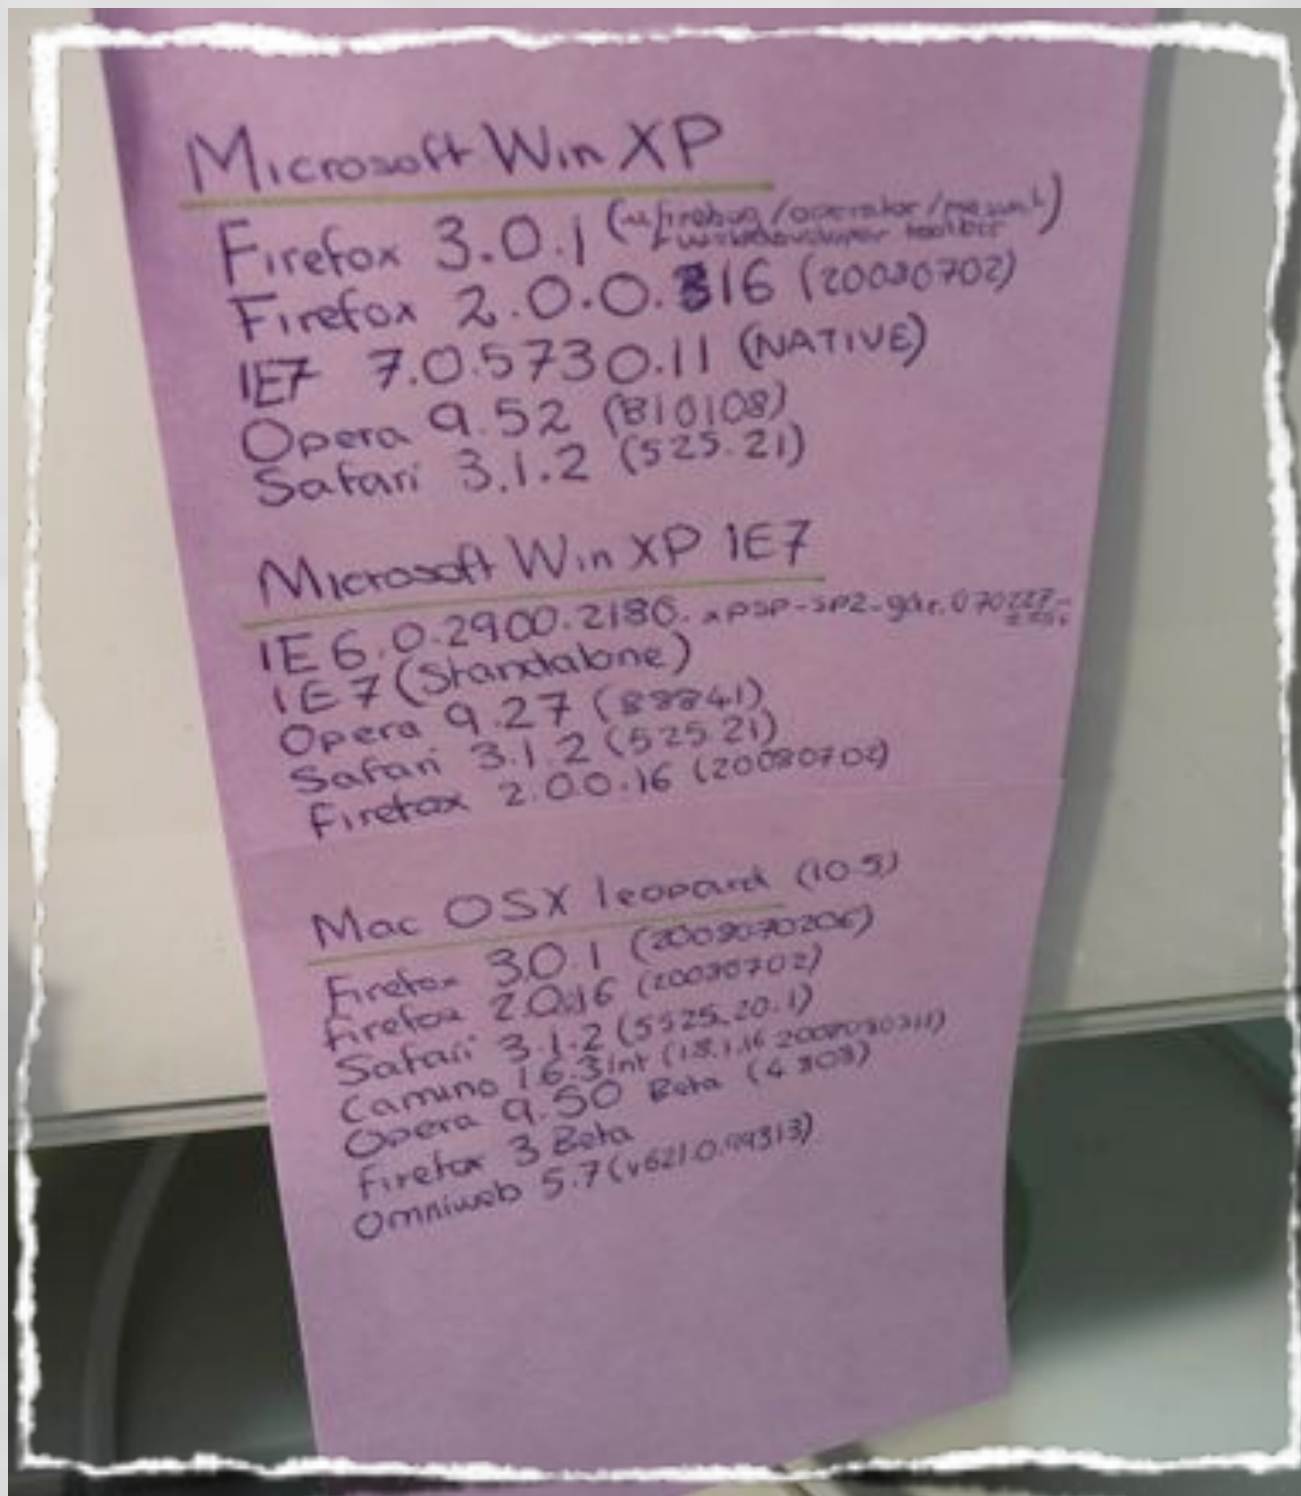 Microsoft Win XP
Firefox 3.0.1 (w/firebug/operator/
toolbar)
Firefox 2.0.0.16 (20080702)
IE7 7.0.5730.11 (NATIVE)
Opera 9.52 (810108)
Safari 3.1.2 (525.21)
Microsoft Win XP IE7
IE 6.0.2900.2180.xpsp-sp2-gdr.
IE7 (Standalone)
Opera 9.27 (8841)
Safari 3.1.2 (525.21)
Firefox 2.0.0.16 (20080702)
Mac OSX leopard (10.5)
Firefox 3.0.1
Firefox 2.0.16 (20080702)
Safari 3.1.2 (5525.20.1)
Camino 1.6.3Int
Opera 9.50 Beta (4808)
Firefox 3 Beta
Omniweb 5.7